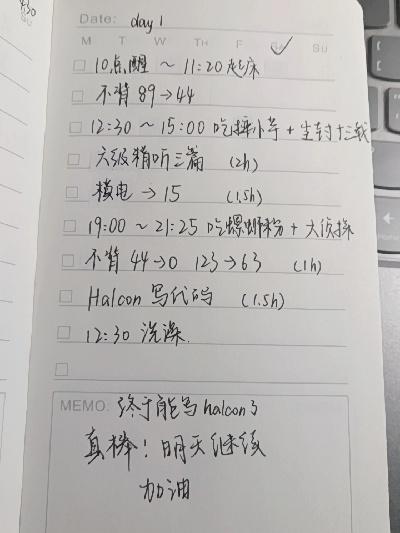 4:30
Date: day 1
M T W TH F SA SU
10点醒 ~ 11:20起床
不背 89→44
12:30 ~ 15:00 吃 +
六级精听三篇 (2h)
模电 → 15 (1.5h)
19:00 ~ 21:25 吃螺蛳粉 + 大侦探
不背 44→0 123→63 (1h)
Halcon 写代码 (1.5h)
12:30 洗澡.
MEMO: 终于能写halcon了
真棒！明天继续
加油